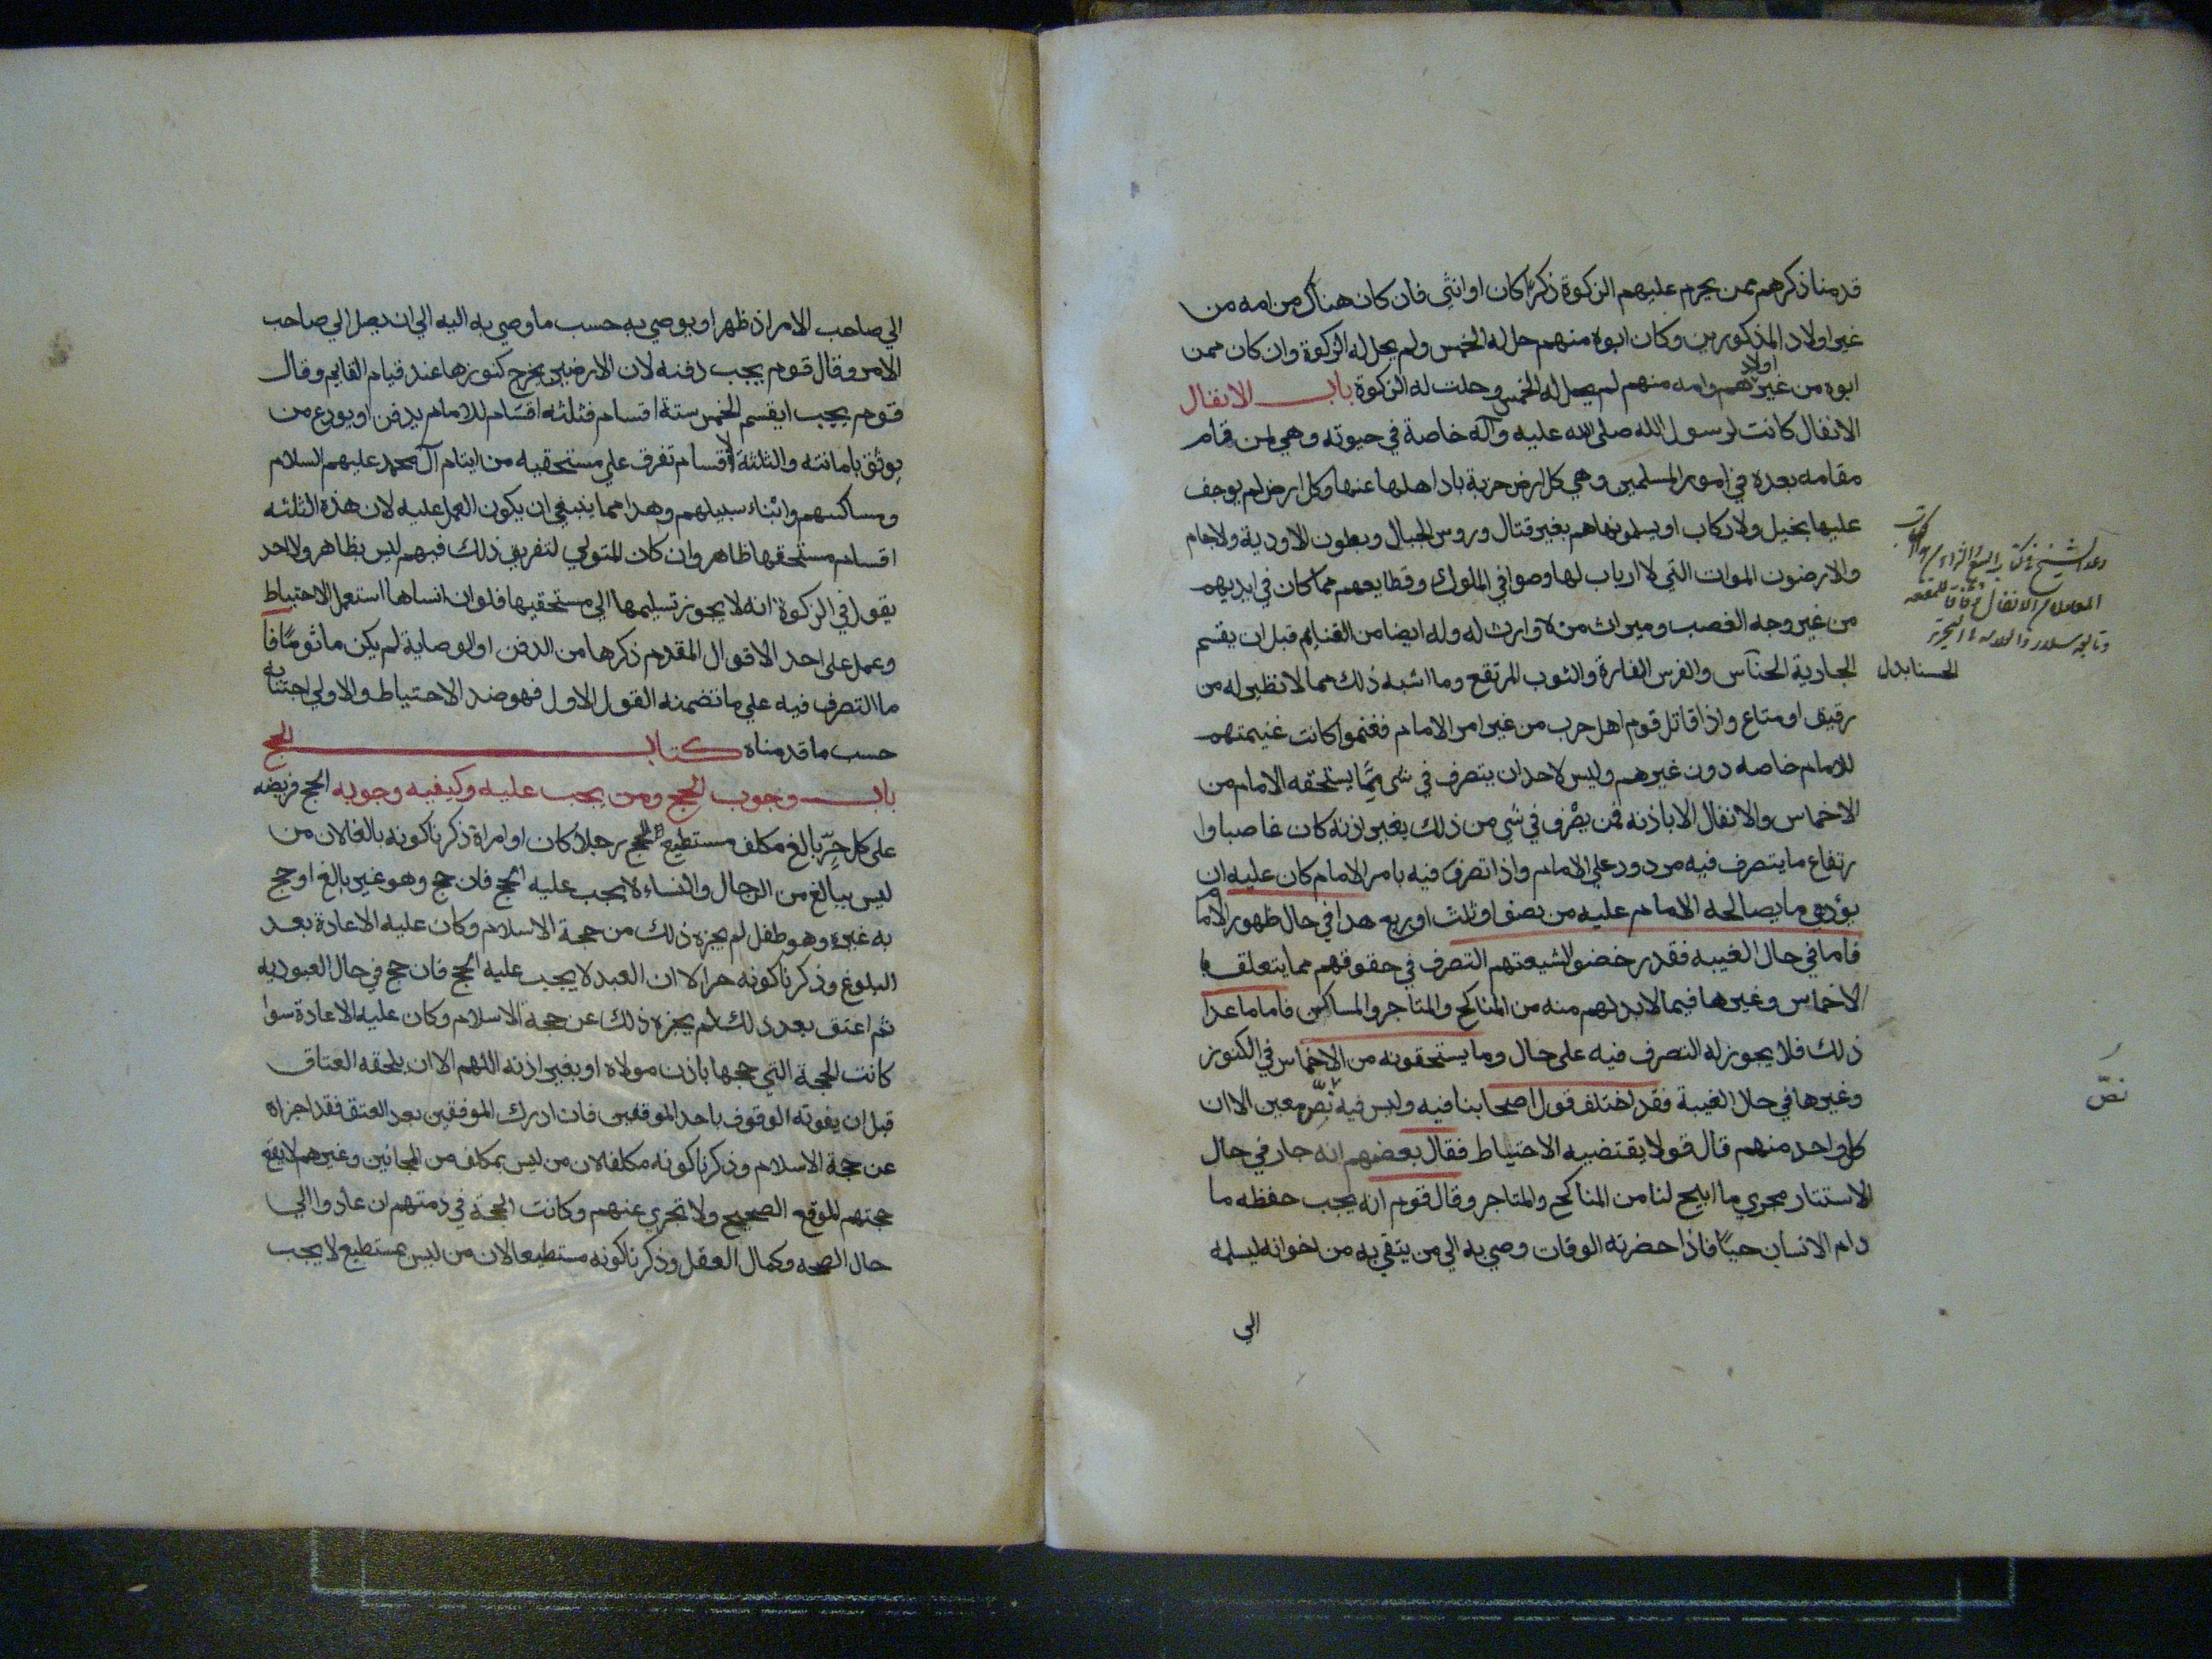 قدمنا ذكرهم ممن يحرم عليهم الزكوة ذكرا كان او انثي فان كان هناك من امه من
غير اولاد المذكورين وكان ابوه منهم حل له الخمس ولم يحل له الزكوة وان كان ممن
ابوه من غير اولادهم وامه منهم لم يحل له الخمس وحلت له الزكوة باب الانفال
الانفال كانت لرسول الله صلى الله عليه وآله خاصة في حيوته وهي لمن قام
مقامه بعده في امور المسلمين وهي كل ارض خربة باد اهلها عنها وكل ارض لم يوجف
عليها بخيل ولا ركاب او يسلمونها هم بغير قتال وروس الجبال وبطون الاودية والاجام
والارضون الموات التي لا ارباب لها وصوافي الملوك وقطايعهم مما كان في ايديهم
من غير وجه الغصب وميراث من لا وارث له وله ايضا من الغنايم قبل ان يقسم
الحسنا بدل
الجارية الحناس والفرس الفارة والثوب المرتفع وما اشبه ذلك مما لا نظير له من
رقيق او متاع واذا قاتل قوم اهل حرب من غير امر الامام فغنموا كانت غنيمتهم
للامام خاصه دون غيرهم وليس لاحد ان يتصرف في شي مما يستحقه الامام من
الاخماس والانفال الا باذنه فمن يصرف في شي من ذلك بغير اذنه كان غاصبا وا
رتفاع ما يتصرف فيه مردود علي الامام واذا تصرف فيه بامر الامام كان عليه ان
يؤدي ما يصالحه الامام عليه من نصف او ثلث او ربع هذا في حال ظهور الامام
فاما في حال الغيبه فقد رخضوا لشيعتهم التصرف في حقوقهم مما يتعلق با
لاخماس وغيرها فيما لا بد لهم منه من المناكح والمتاجر والمساكن فاما ما عدا
ذلك فلا يجوز له التصرف فيه على حال وما يستحقونه من الاخماس في الكنوز
وغيرها في حلا الغيبة فقد اختلف قول اصحابنا فيه وليس فيه نص معين الا ان
نصّ
كل واحد منهم قال قولا يقتضيه الاحتياط فقال بعضهم انه جار في حال
الاستتار مجري ما ابيح لنا من المناكح والمتاجر وقال قوم انه يجب حفظه ما
دام الانسان حيًا فاذا حضرته الوفات وصي به الي من يثق به من اخوانه ليسلمه
الي
الي صاحب الامر اذ ظهر او يوصي به حسب ما وصي به اليه الي ان يصل الي صاحب
الامر وقال قوم يجب دفنه لان الارضين يخرج كنوزها عند قيام القايم وقال
قوم يجب ان يقسم الخمس ستة اقسام فثلثه اقسام للامام يدفن او يودع من
يوثق بامانته والثلثة الاقسام تفرق علي مستحقيه من ايتام آل محمد عليهم السلام
ومساكينهم وابناء سبيلهم وهذا مما ينبغي ان يكون العمل عليه لان هذه الثلثه
اقسام مستحقها ظاهر وان كان المتولي لتفريق ذلك فيهم ليس بظاهر ولا احد
يقول في الزكوة انه لا يجوز تسليمها الي مستحقيها فلو ان انسانا استعمل الاحتياط
وعمل على احد الاقوال المقدم ذكرها من الدفن او الوصاية لم يكن ماثومًا فا
ما التصرف فيه علي ما تضمنه القول الاول فهو ضد الاحتياط والاولي اجتنابه
حسب ما قدمناه كتاب الحج
باب وجوب الحج ومن يجب عليه وكيفيه وجوبه الحج فريضه
على كل حرّ بالغ مكلف مستطيع للحج رجلا كان او امراة ذكرنا كونه بالغا لان من
ليس ببالغ من الرجال والنساء لا يجب عليه الحج فان حج وهو غير بالغ او حج
به غيره وهو طفل لم يجزه ذلك من حجة الاسلام وكان عليه الاعادة بعد
البلوغ وذكرنا كونه حرا لان العبد لا يجب عليه الحج فان حج في حال العبوديه
ثم اعتق بعد ذلك لم يجزه ذلك عن حجة الاسلام وكان عليه الاعادة سوا
كانت الحجة التي حجها باذن مولاه او بغير اذنه اللهم الا ان يلحقه العتاق
قبل ان يفوته الوقوف باحد الموقفين فان ادرك الموقفين بعد العتق فقد اجزاه
عن حجة الاسلام وذكرنا كونه مكلفا لان من ليس بمكلف من المجانين وغيرهم لا يقع
حجتهم الموقع الصحيح ولا تجزي عنهم وكانت الحجة في ذمتهم ان عادوا الي
حال الصحه وكمال العقل وذكرنا كونه مستطيعا لان من ليس بمستطيع لا يجب